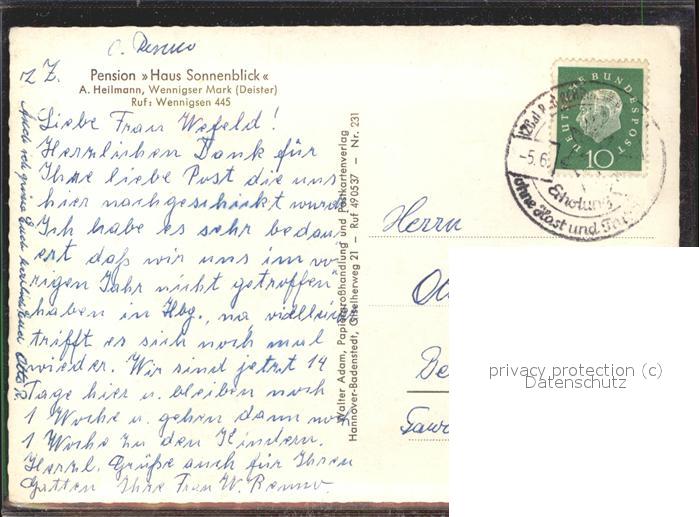 z Z.
Pension »Haus Sonnenblick«
A. Heilmann, Wennigser Mark (Deister)
Ruf: Wennigsen 445
Liebe Frau Wefeld!
Herzlichen Dank für
Ihre liebe Post die uns
hier nachgeschickt wurde
Ich habe es sehr bedau
ert daß wir uns im vo
rigen Jahr nicht getroffen
haben in Hbg., na vielleicht
trifft es sich noch mal
wieder. Wir sind jetzt 14
Tage hier u. bleiben noch
1 Woche u. gehen dann noch
1 Woche zu den Kindern.
Herzl. Grüße auch für Ihren
Gatten Ihre Frau W. Renno.
Walter Adam, Papiergroßhandlung und Postkartenverlag
Hannover-Badenstedt, Giselherweg 21 - Ruf 490537 - Nr. 231
DEUTSCHE BUNDESPOST
10
-5.6
Erholung
ohne Hast und
Herrn
privacy protection (c)
Datenschutz